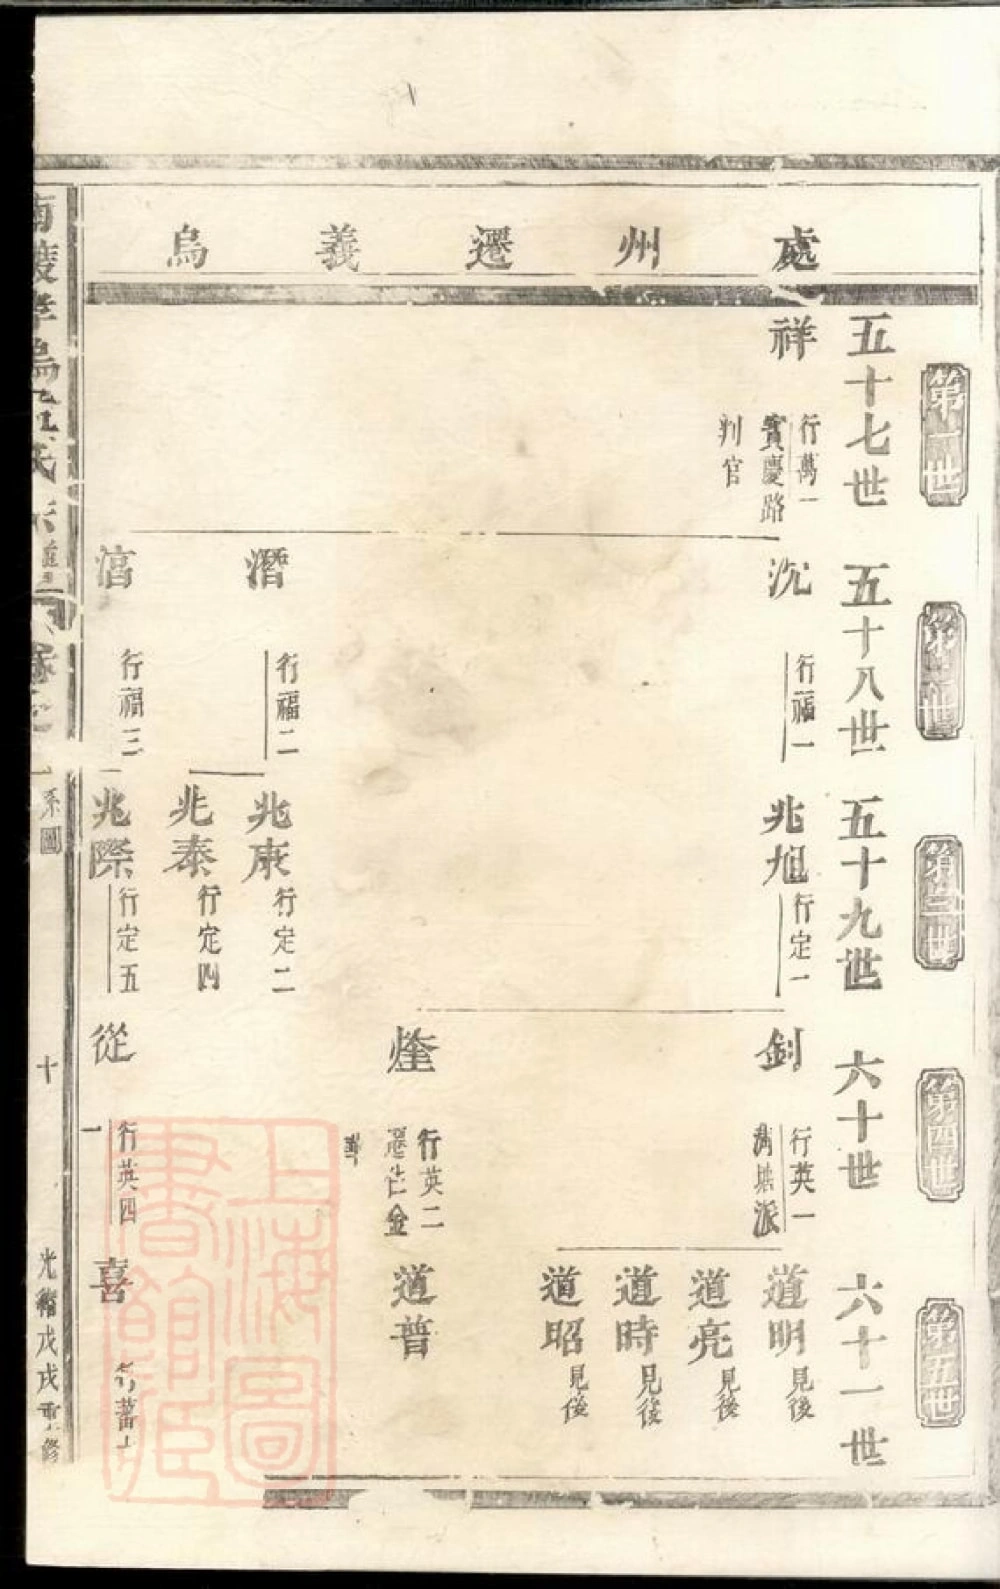 處州遷義烏
第一世
五十七世
祥
行萬一
寶慶路
判官
第二世
五十八世
沉
行福一
潛
行福二
湻
行福三
第三世
五十九世
兆旭
行定一
兆康
行定二
兆泰
行定四
兆際
行定五
第四世
六十世
釗
行英一
派
煃
行英二
從
行英四
一
第五世
六十一世
道明
見後
道亮
見後
道時
見後
道昭
見後
道普
喜
系圖
十
光緒戊戌重修
上海圖書館藏